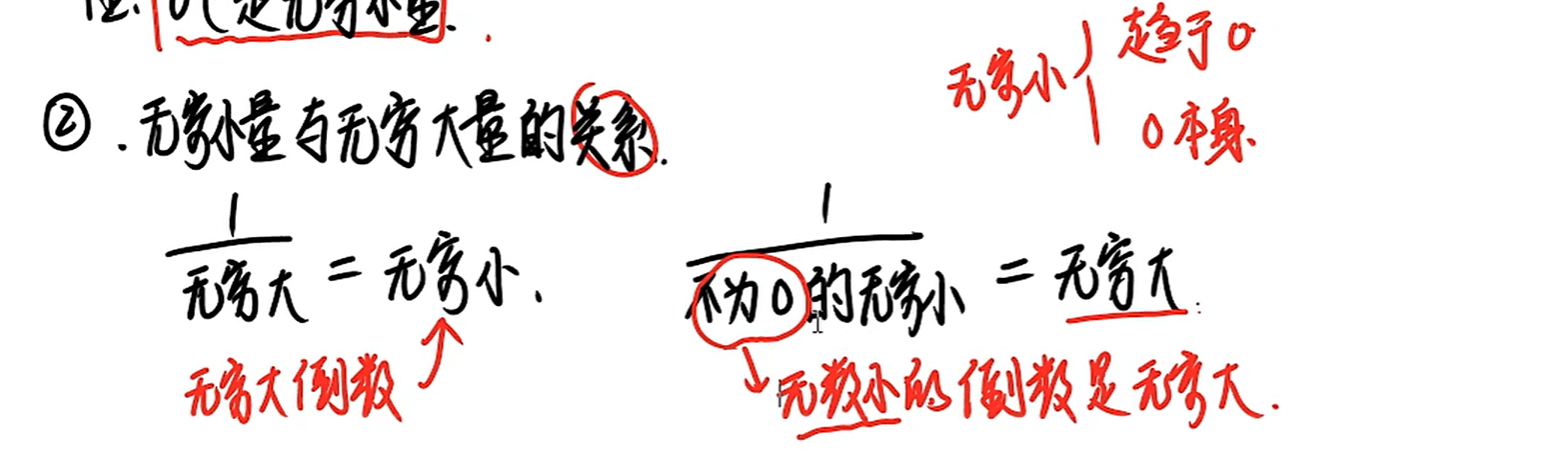 是无穷小量.
无穷小 { 趋于0
0本身.
② . 无穷小量与无穷大量的关系.
1/无穷大 = 无穷小. 1/不为0的无穷小 = 无穷大.
无穷大倒数 ↗ ↘ 无数小的倒数是无穷大.